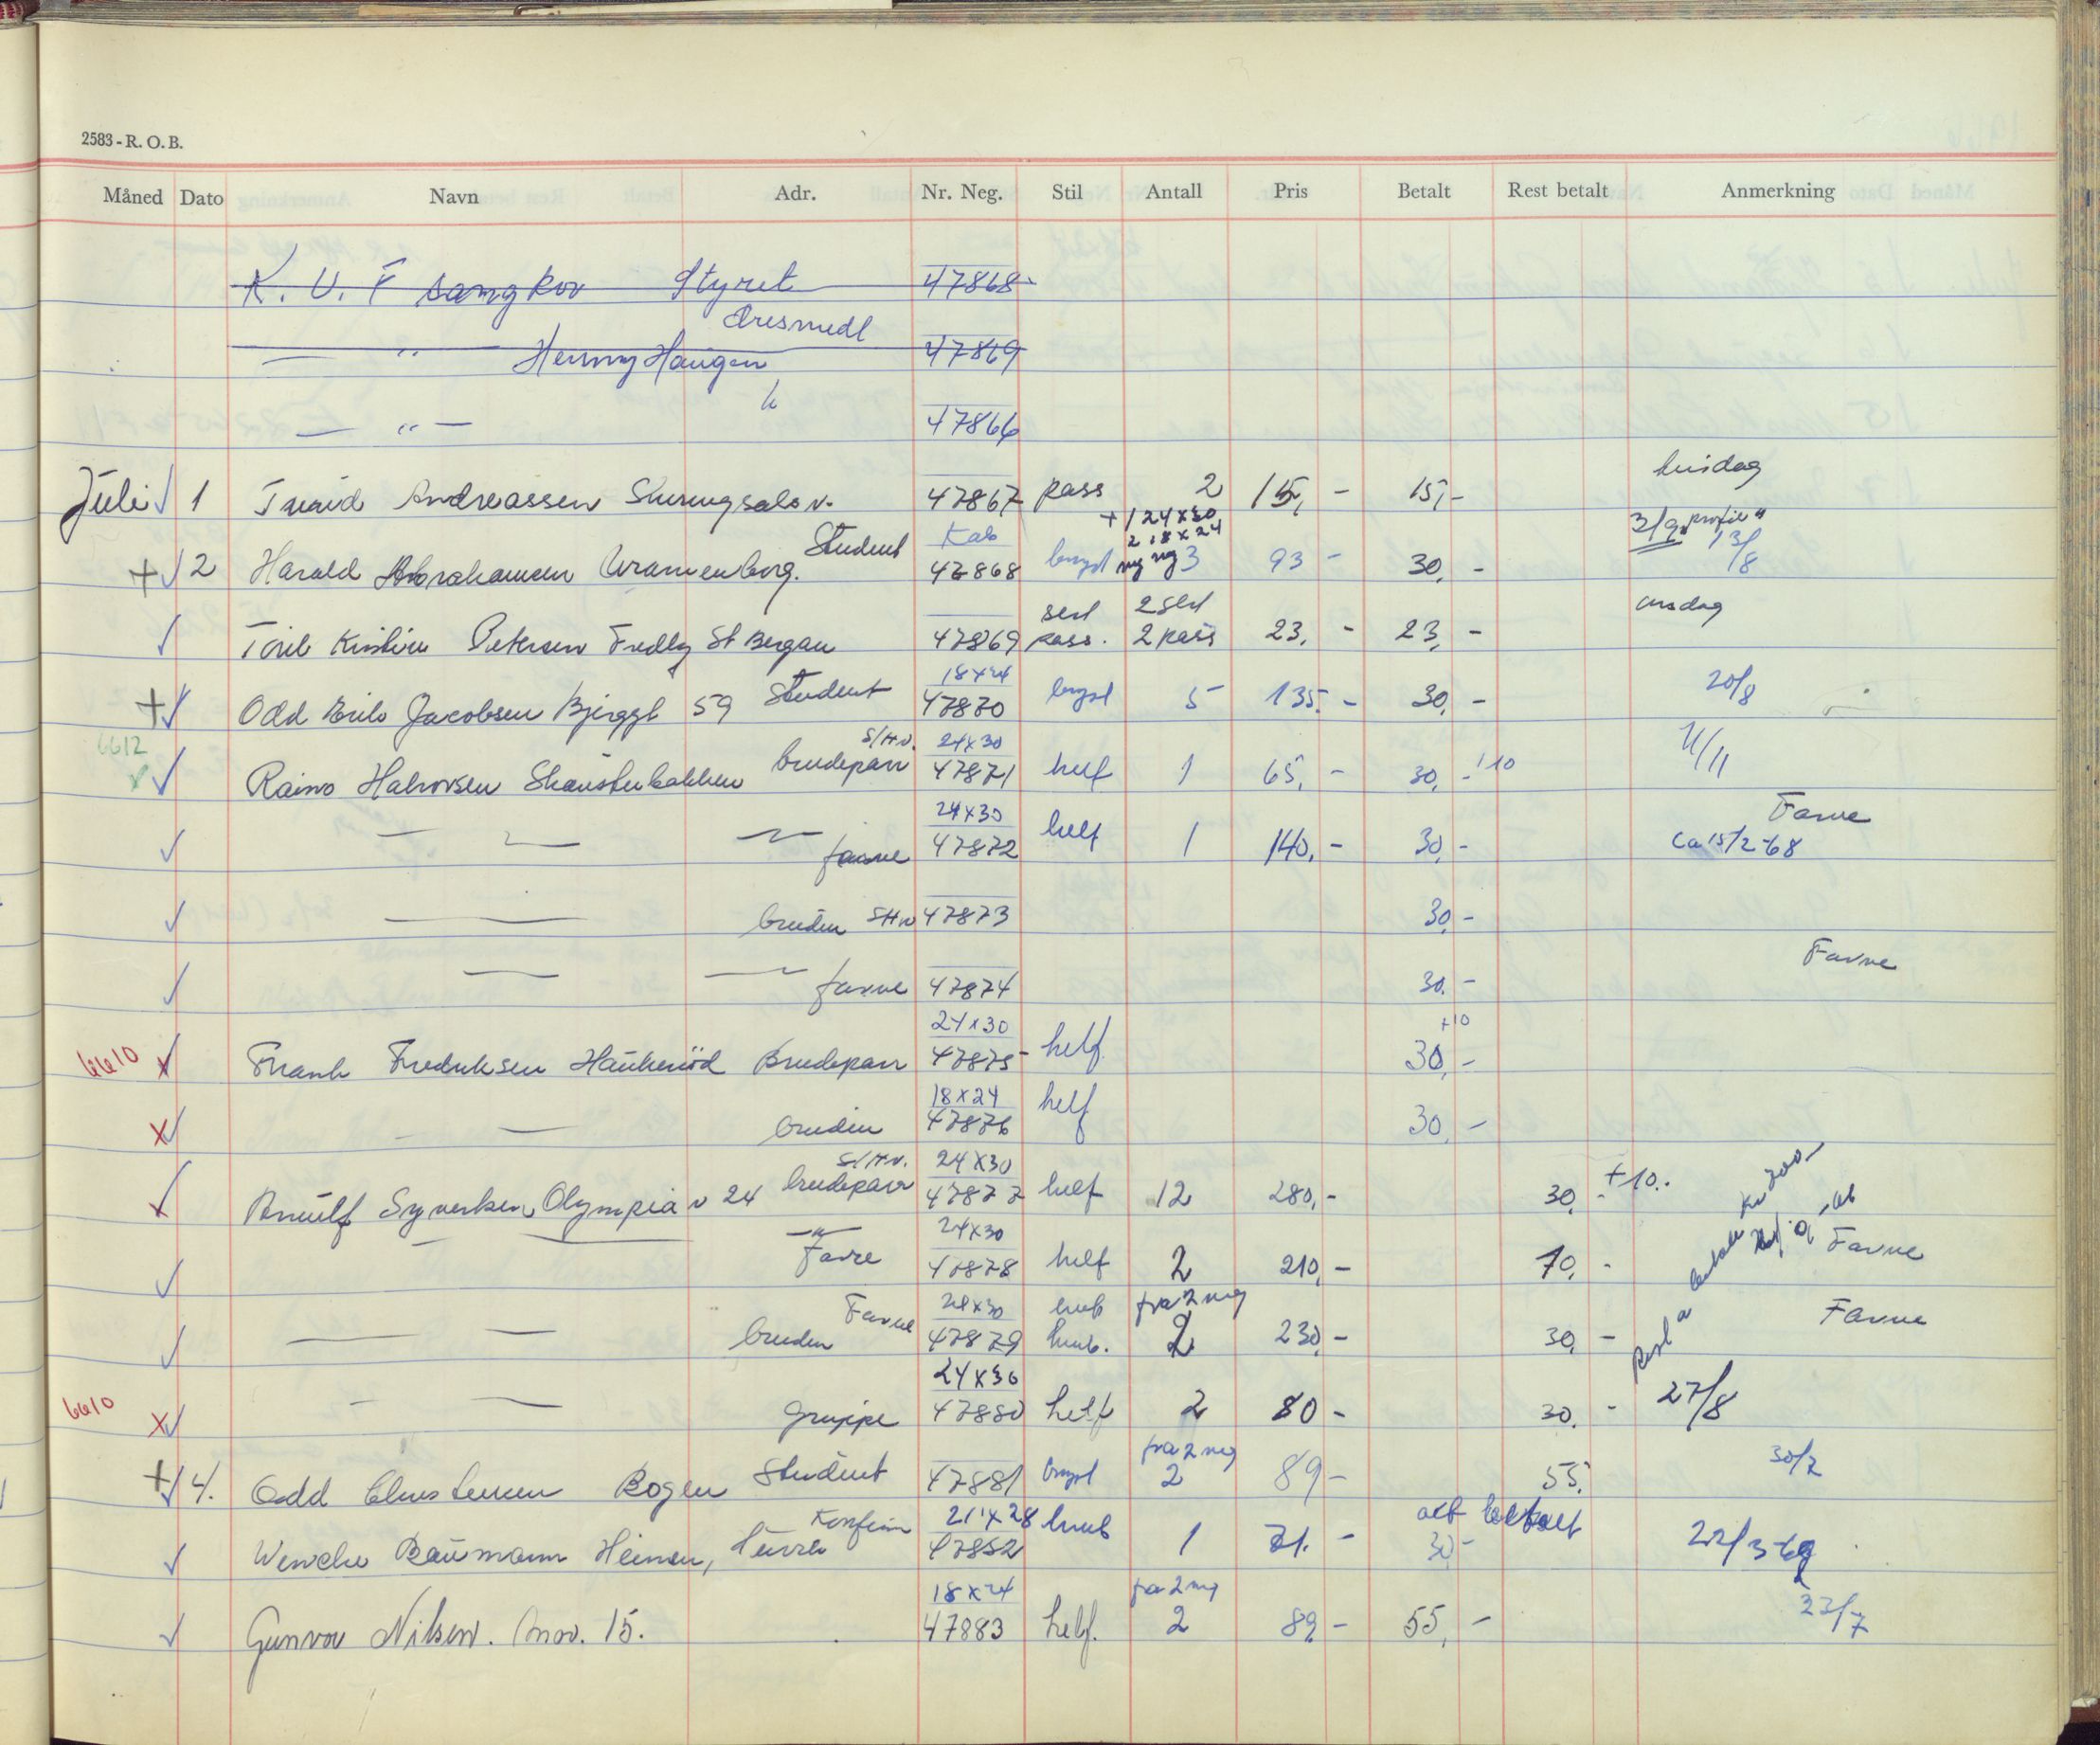 2583 - R. O. B.
Måned Dato Navn Adr. Nr. Neg. Stil Antall Pris Betalt Rest betalt Anmerkning
K. U. F sangkor Styret 47868
Æresmedl
— " — Henny Haugen 47869
— " — 47866
Juli 1 Andreassen 47867 pass 2 15,- 15,-
+ 1 24x30
2 18x24
3/9 "profil"
+ 2 Harald Abrahamsen Student Kab 47868 bryst 3 93 - 30,- 13/8
Kirstine Petersen St Bergan 47869 pass. 2 pass 23,- 23,-
18x24
+ Odd Erik Jacobsen Bjerggt 59 Student 47870 bryst 5 135,- 30,- 20/8
6612 S/Hv. 24x30
Halvorsen brudepar 47871 helf 1 65,- 30,- 10 4/11
24x30 Farve
farve 47872 helf 1 140,- 30,- ca 15/2-68
bruden S/Hv 47873 30,-
Farve
farve 47874 30,-
24x30 +10
6610 x Frank Fredriksen Haukerød Brudepar 47875 helf 30,-
18x24
x bruden 47876 helf 30,-
S/Hv. 24x30
Arnulf Syvertsen, Olympia v 24 brudepar 47877 helf 12 280,- 30,- +10.-
24x30
Farve 47878 helf 2 210,- 70,- Farve
Farve 24x30 fra 2 neg
bruden 47879 2 230,- 30,- Farve
24x30
6610 x gruppe 47880 helf 2 80 - 30,- 27/8
fra 2 neg
+ 4. Odd Christensen Bogen Student 47881 bryst 2 89 - 55, 30/7
Konfirm 21x28 alt betalt
Wenche Baumann 47882 1 71,- 30,- 22/3-69
18x24 fra 2 neg
Gunvor Nilsen. 15. 47883 helf. 2 89,- 55,- 23/7